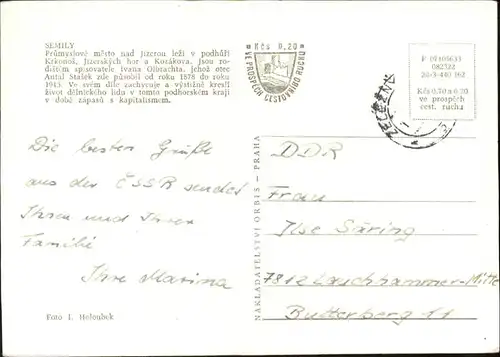 SEMILY
Průmyslové město nad Jizerou leží v podhůří
Krkonoš, Jizerských hor a Kozákova. Jsou ro-
dištěm spisovatele Ivana Olbrachta, jehož otec
Antal Stašek zde působil od roku 1878 do roku
1913. Ve svém díle zachycuje a výstižně kreslí
život dělnického lidu v tomto podhorském kraji
v době zápasů s kapitalismem.
Kčs 0,20
VE PROSPĚCH CESTOVNÍHO RUCHU
Kčs 0.70 a 0.20
ve prospěch
cest. ruchu
Die besten Grüße
aus der ČSSR sendet
Ihnen und Ihrer
Familie
Ihre Marina
Foto J. Holoubek
NAKLADATELSTVÍ ORBIS - PRAHA
DDR
Frau
Ilse Säring
7812 Lauchhammer-Mitte
Butterberg 11